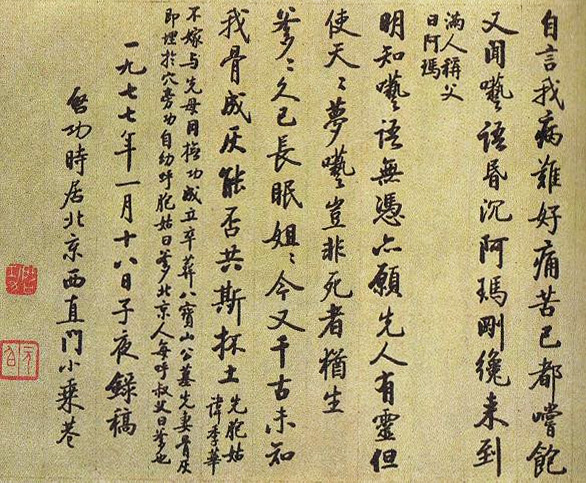 自言我病難好痛苦已都嚐飽
又聞囈語昏沉阿瑪剛纔来到
滿人稱父
曰阿瑪
明知囈語無憑亦願先人有靈但
使天〻夢囈豈非死者猶生
爹〻久已長眠姐〻今又千古未知
我骨成灰能否共斯抔土
先胞姑
諱季華
不嫁与先母同撫功成立卒葬八寶山公墓先妻骨灰
即埋於穴旁功自幼呼胞姑曰爹北京人每呼叔父曰爹也
一九七七年一月十八日子夜錄稿
啟功時居北京西直門小乘巷